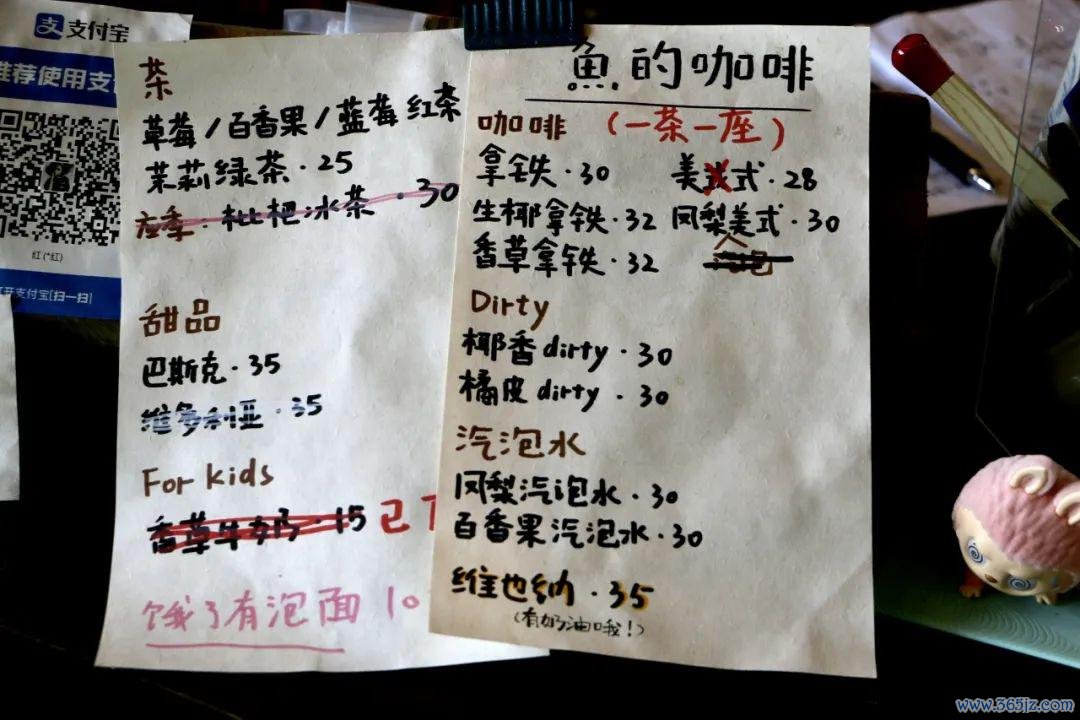 支付宝
推荐使用支
红(*红)
打开支付宝[扫一扫]
茶
草莓/百香果/蓝莓 红茶
茉莉绿茶·25
枇杷冰茶·30
甜品
巴斯克·35
维多利亚·35
For kids
香草牛奶·15 已下
饿了有泡面 10
魚的咖啡
咖啡 (一茶一座)
拿铁·30 美式·28
生椰拿铁·32 凤梨美式·30
香草拿铁·32
Dirty
椰香dirty·30
橘皮dirty·30
汽泡水
凤梨汽泡水·30
百香果汽泡水·30
维也纳·35
(有奶油哦!)
www.365jz.com